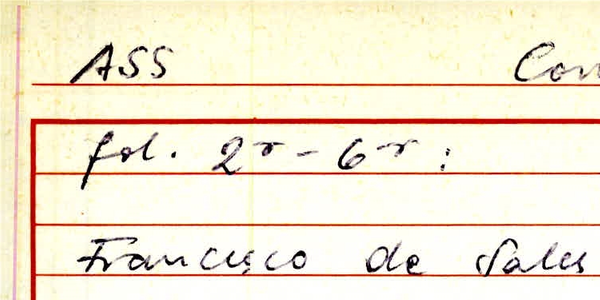 ASS Con
fol. 2r - 6r :
Francisco de Sales